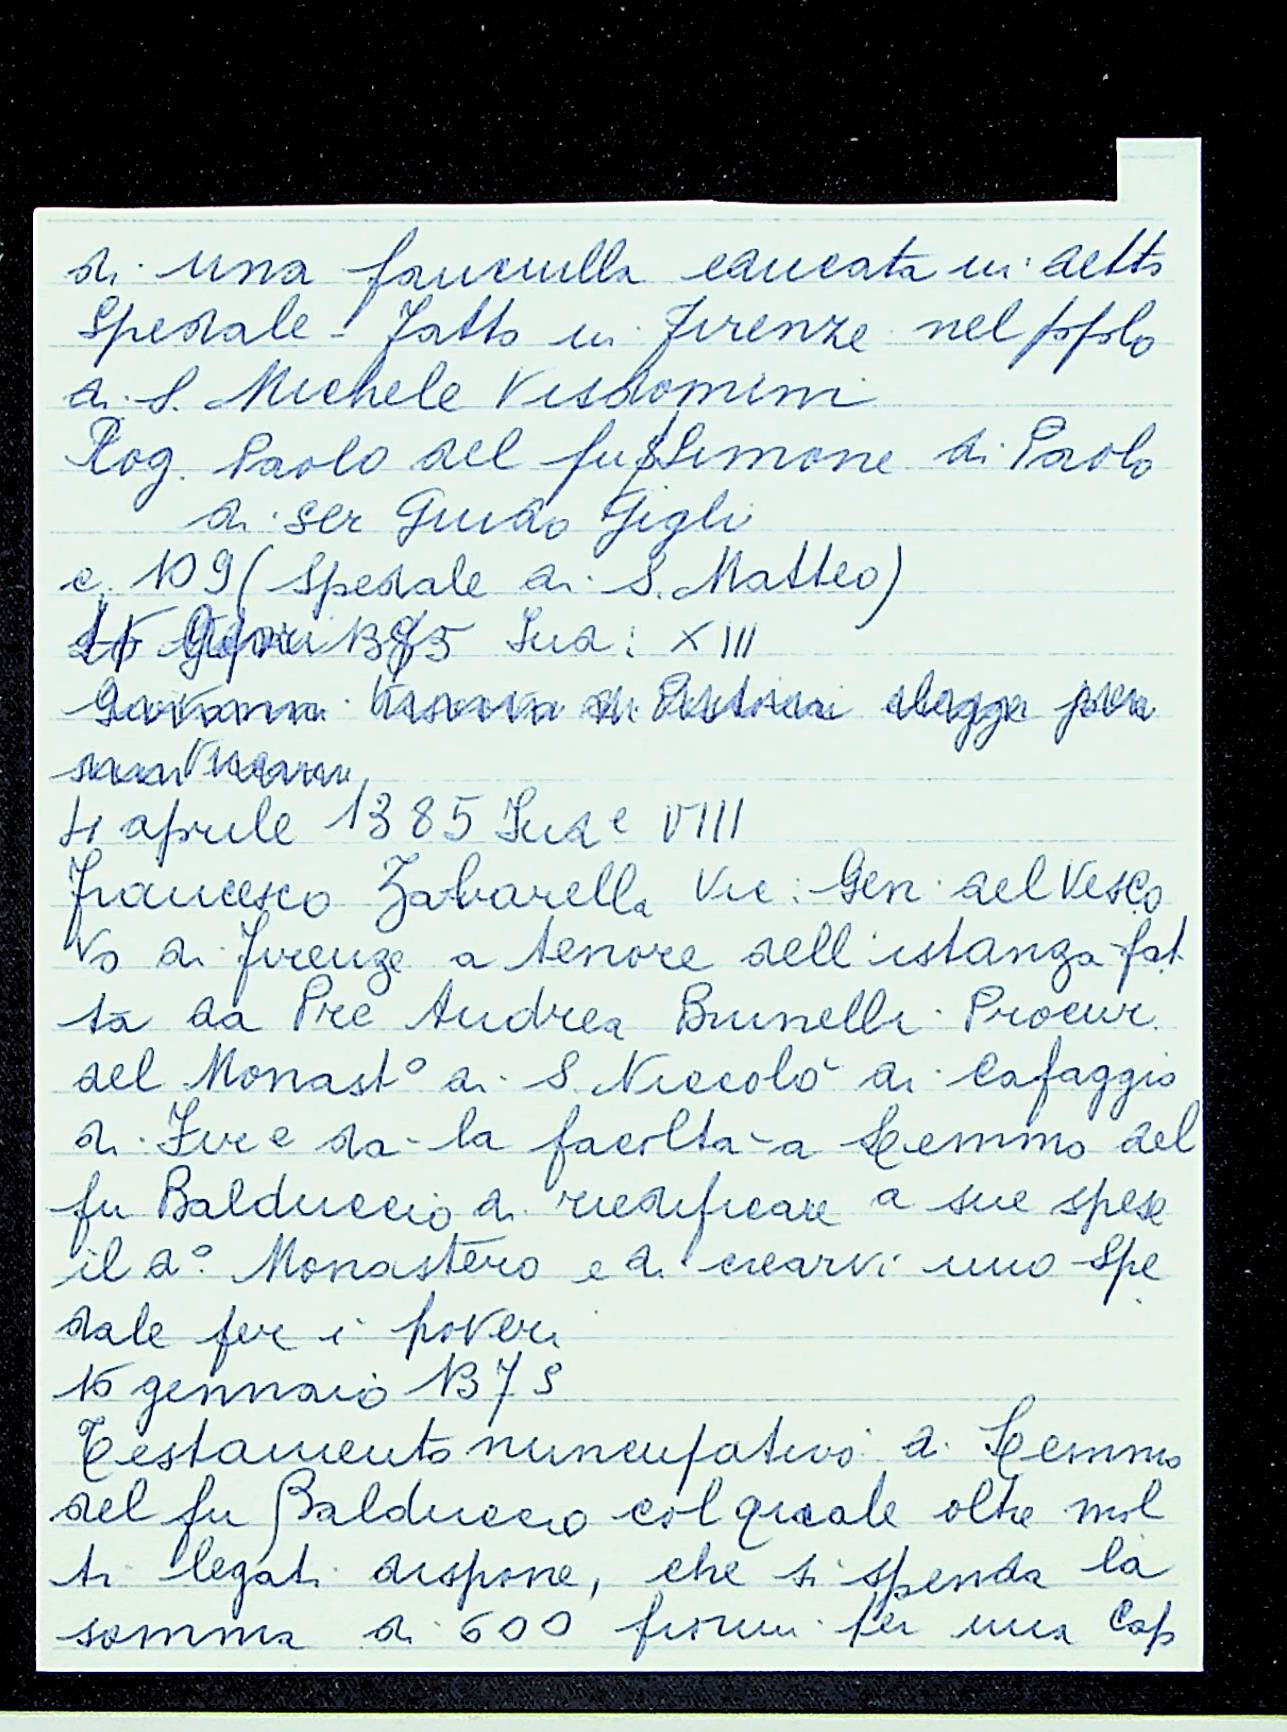 di una fanciulla educata in detto
Spedale - Fatto in Firenze nel popolo
di S. Michele Visdomini
Rog. Paolo del fu Simone di Paolo
di ser Guido Gigli
c. 109 (Spedale di S. Matteo)
1385 Ind: XIII
Giovanni elegge per
4 aprile 1385 Ind e VIII
Francesco Zabarella Vic: Gen: del Vesco
vo di Firenze a tenore dell'istanza fat
ta da Pre Andrea Brunelli Procur.
del Monast° di S. Niccolò di Cafaggio
di Fir e dà la facoltà a Lemmo del
fu Balduccio di riedificare a sue spese
il d° Monastero e di crearvi uno Spe
dale per i poveri
15 gennaio 1379
Testamento nuncupativo di Lemmo
del fu Balduccio col quale oltre mol
ti legati dispone, che si spenda la
somma di 600 fiorini per una Cap